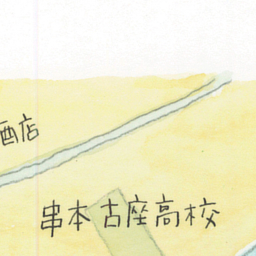 酒店
串本古座高校